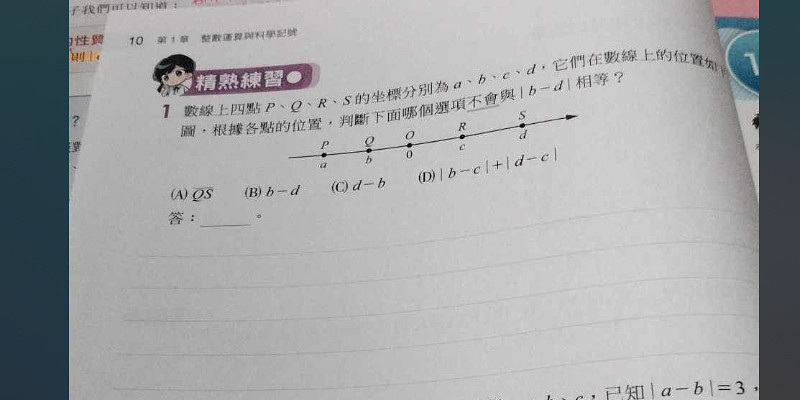 子我們可以知道：
10 第1章 整數運算與科學記號
精熟練習
1 數線上四點 P、Q、R、S 的坐標分別為 a、b、c、d，它們在數線上的位置如
圖，根據各點的位置，判斷下面哪個選項不會與 | b－d | 相等？
P Q O R S
a b 0 c d
(A) QS (B) b－d (C) d－b (D) | b－c |＋| d－c |
答：＿＿＿。
已知 | a－b |＝3，